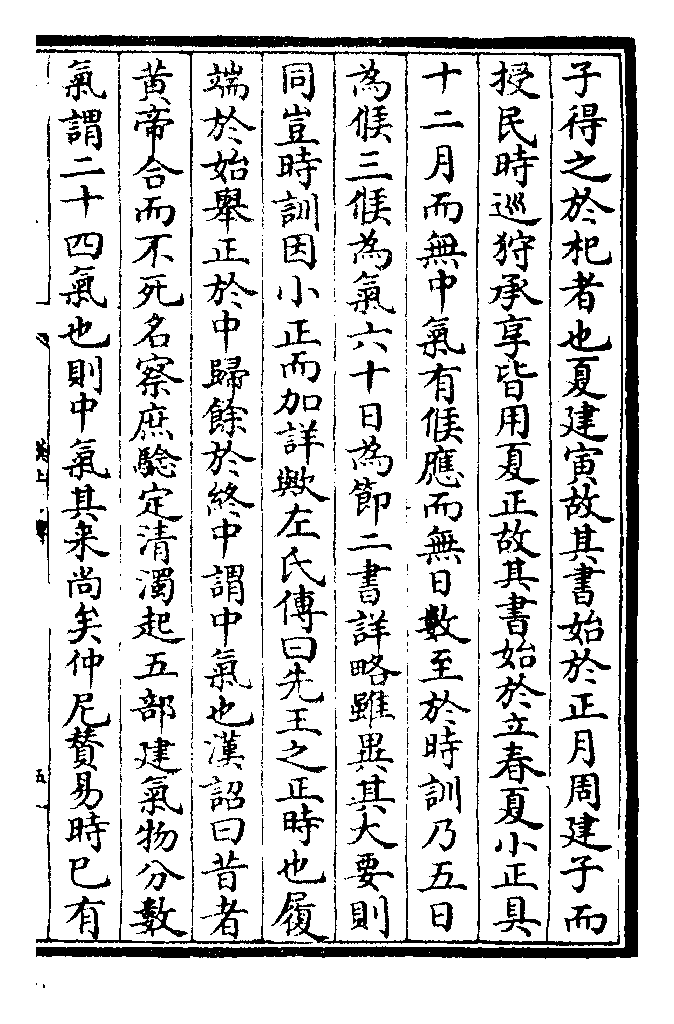 子得之於杞者也夏建寅故其書始於正月周建子而
授民時巡狩承享皆用夏正故其書始於立春夏小正具
十二月而無中氣有候應而無日數至於時訓乃五日
為候三候為氣六十日為節二書詳略雖異其大要則
同豈時訓因小正而加詳歟左氏傳曰先王之正時也履
端於始舉正於中歸餘於終中謂中氣也漢詔曰昔者
黃帝合而不死名察庶驗定清濁起五部建氣物分數
氣謂二十四氣也則中氣其来尚矣仲尼賛易時已有
五